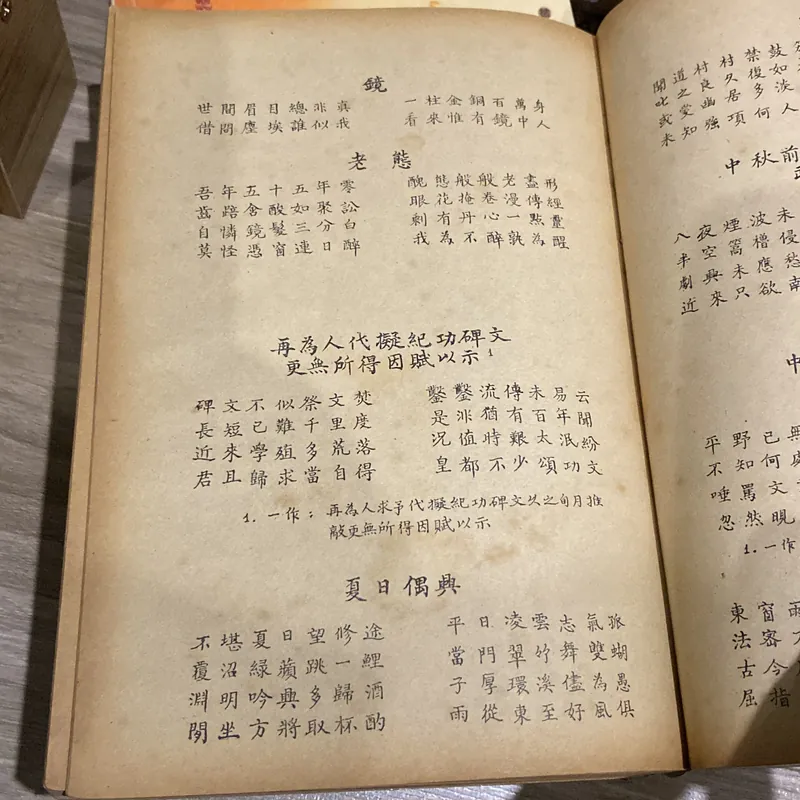 鏡
世間眉目總非真 一柱金銅百萬身
借問塵埃誰似我 看來惟有鏡中人
老態
吾年五十五年零 醜態般般老盡形
齒踣含酸如聚訟 眼花掩卷漫傳經
自憐鏡髮三分白 剩有丹心一點靈
莫怪憑窗連日醉 我為不醉孰為醒
再為人代擬紀功碑文
更無所得因賦以示1
碑文不似祭文焚 鑿鑿流傳未易云
長短已難千里度 是非猶有百年聞
近來學殖多荒落 況值時艱太泯紛
君且歸求當自得 皇都不少頌功文
1. 一作：再為人求予代擬紀功碑文久之旬月推
敲更無所得因賦以示
夏日偶興
不堪夏日望修途 平日凌雲志氣孤
覆沼綠蘋跳一鯉 當門翠竹舞雙蝴
淵明吟興多歸酒 子厚環溪儘為愚
閒坐方將取杯酌 雨從東至好風俱
聞道村村禁鼓
叱之良久復如
或愛幽居多淡
未知強項何人
中秋前
八夜煙波未
半空篙櫓侵
劇興未應愁
近來只欲南
中
平野已無
不知何處
唾罵文
忽然睍
1. 一作
東窗雨
法審
古今
屈指